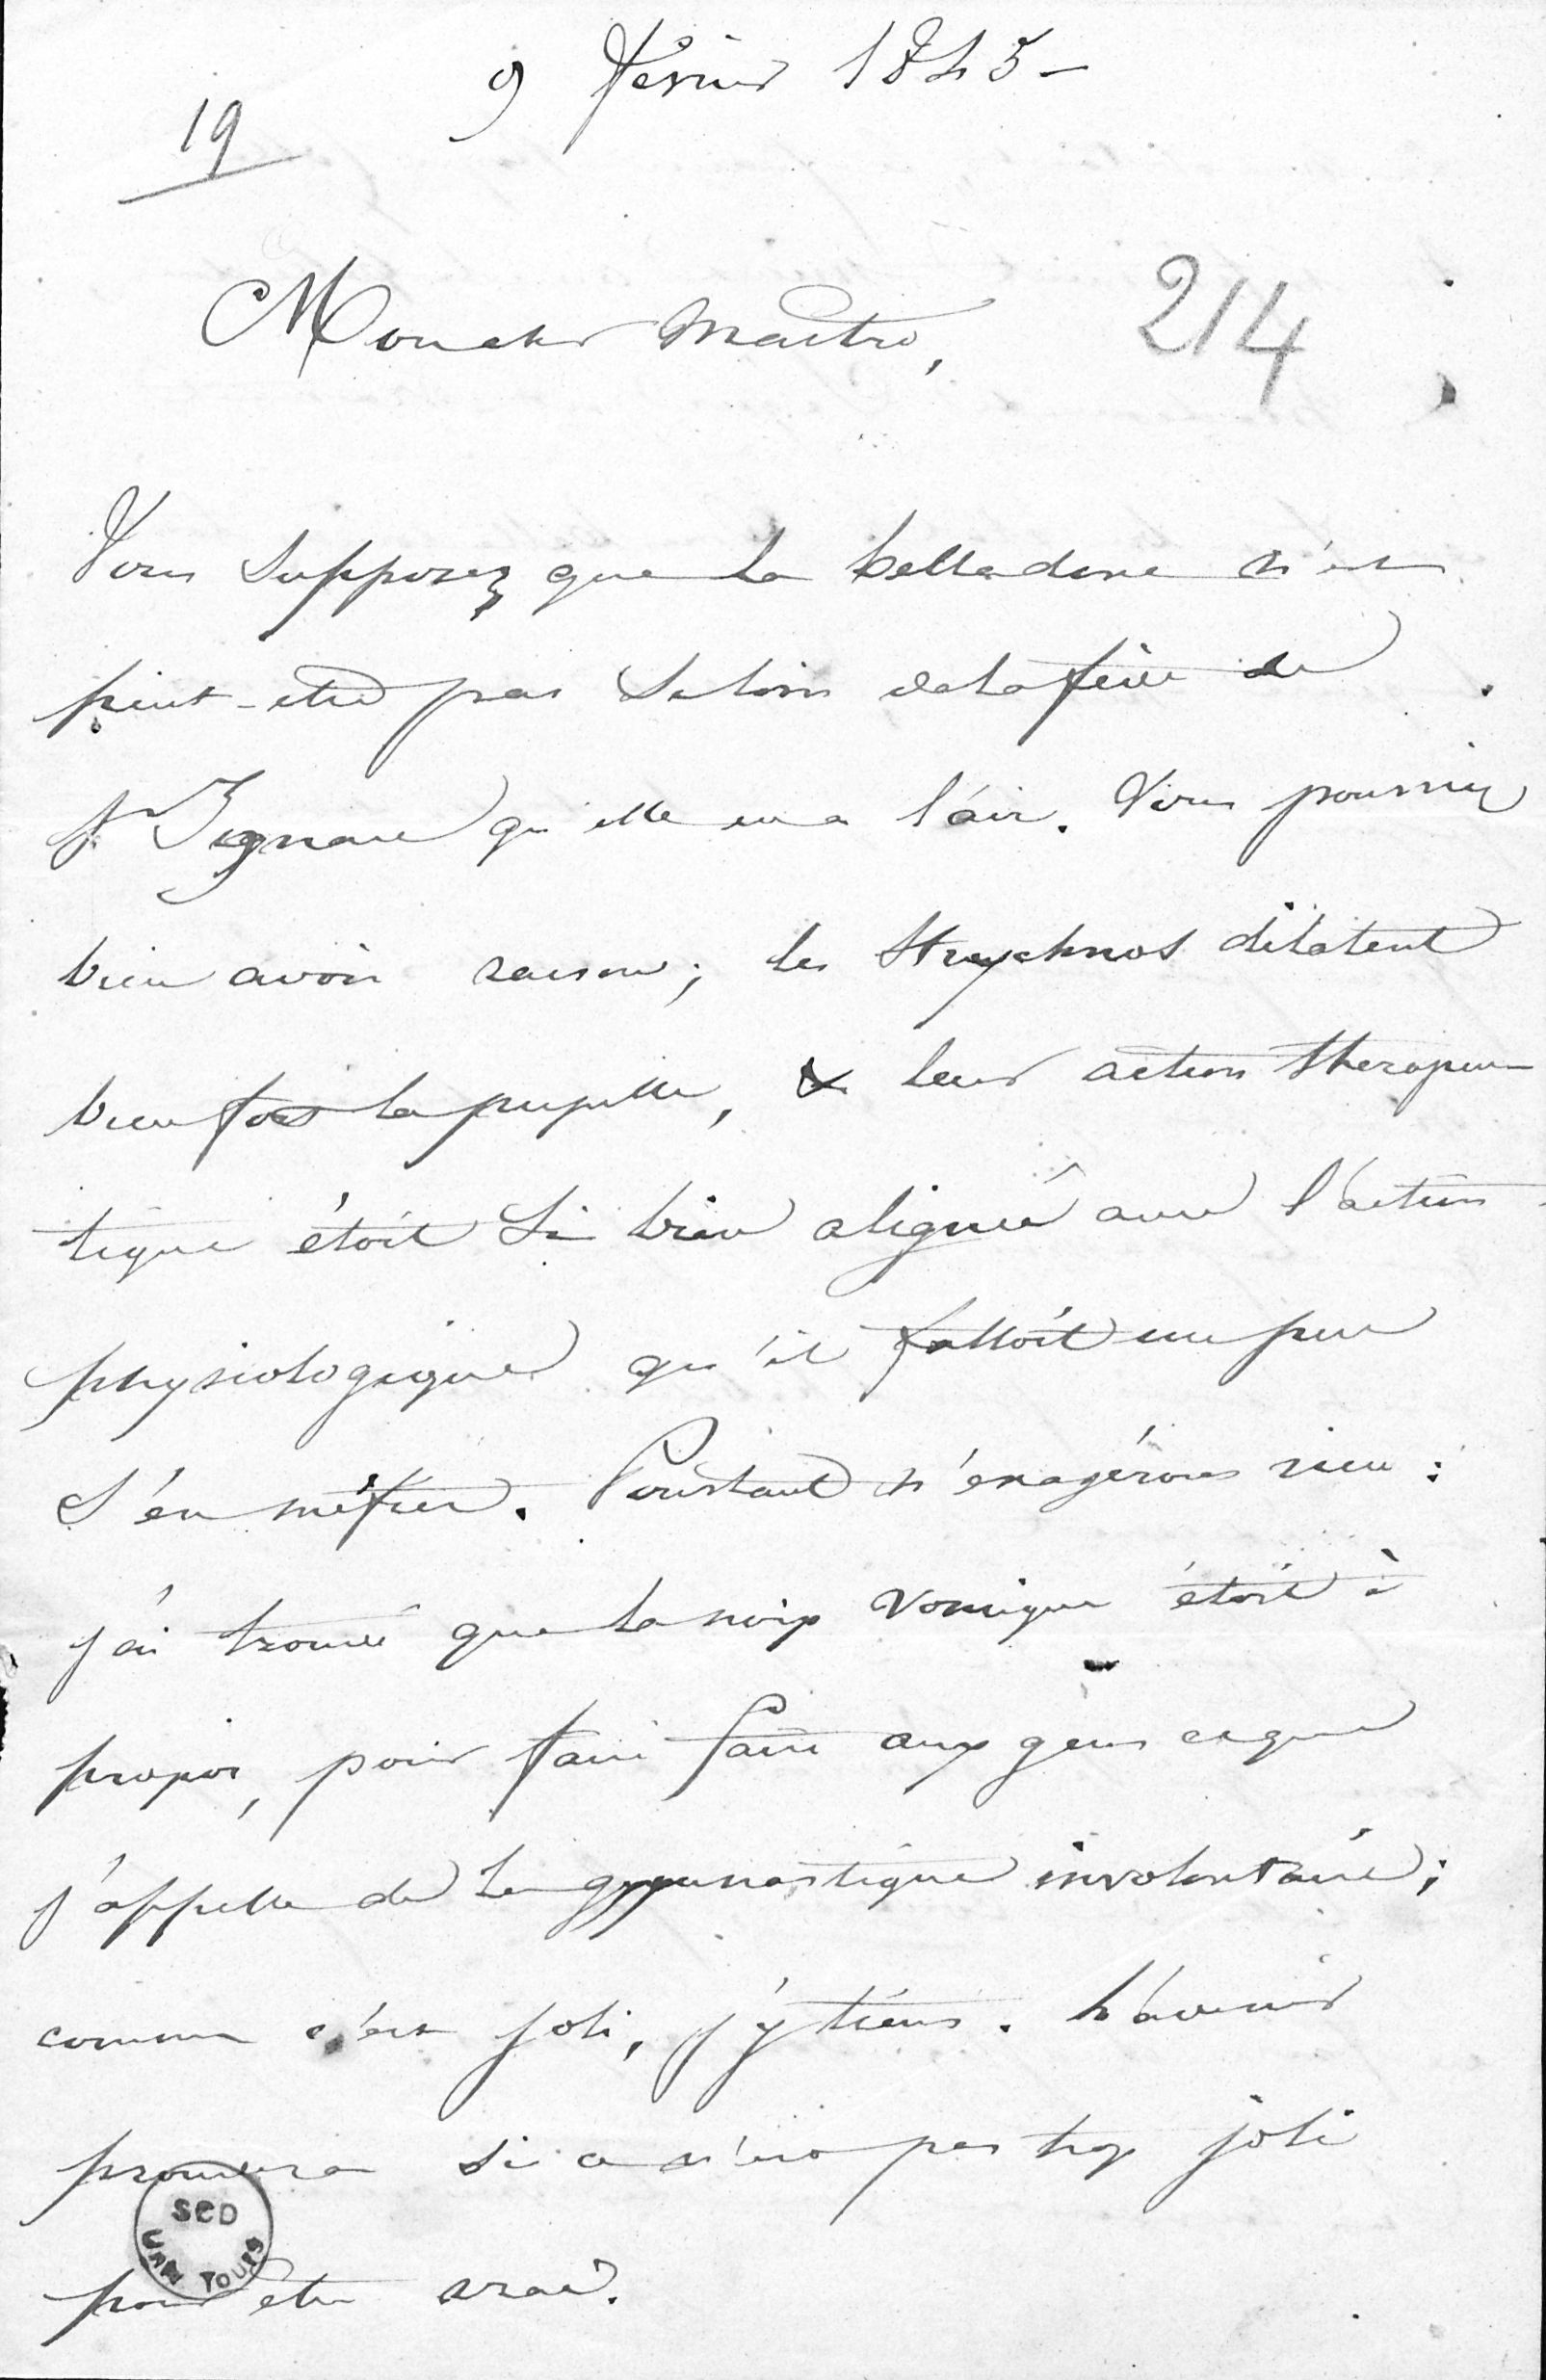 9 février 1845 -
19
Mon cher maître,
214
Vous supposez que la belladone n'est
peut-être pas si loin de la fève de
St Ignace qu'elle en a l'air. Vous pourriez
bien avoir raison; les Strychnos dilatent
bien fort la pupille, & leur action thérapeu-
tique étoit si bien alignée avec l'action
physiologique qu'il falloit un peu
s'en méfier. Pourtant n'exagérons rien :
j'ai trouvé que la noix vomique étoit à
propos, pour faire faire aux gens ce que
j'appelle de la gymnastique involontaire;
comme c'est joli, j'y tiens. L'avenir
prouvera si ce n'est pas trop joli
pour être vrai.
SCD
UNIV TOURS